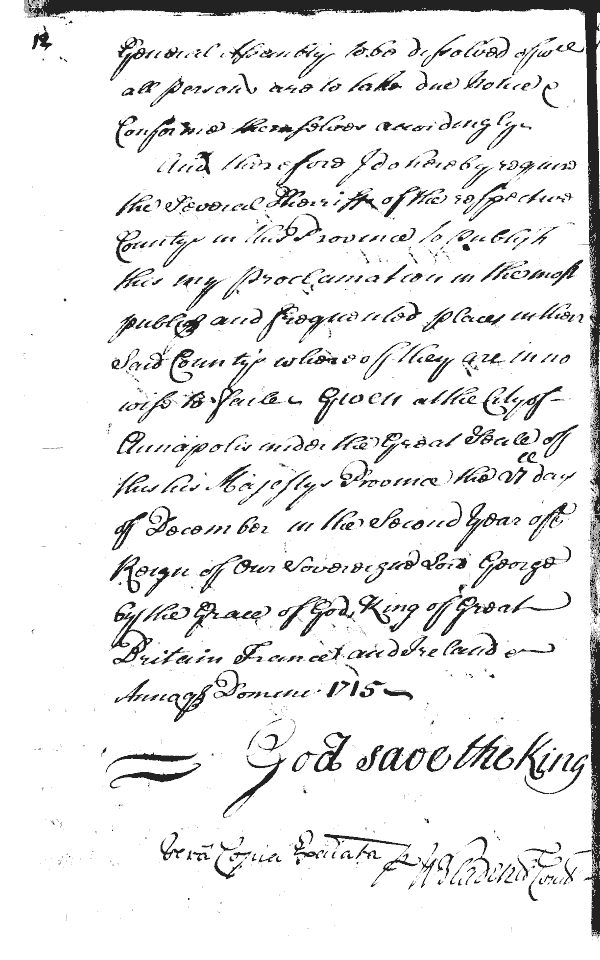 12
General Assembly to be dissolved of wch
all persons are to take due Notice &
Conforme themselves accordingly
And therefore I do hereby require
the Several Sherriffs of the respective
Countys in this Province to publish
this my proclamation in the most
publick and frequented places in their
Said Countys whereof they are in no
wise to faile Given at the City of
Annapolis under the Great Seale of
this his Majestys Province the 27th day
of December in the Second Year of the
Reign of our Sovereigne Lord George
by the Grace of God King of Great
Britain France and Ireland &
Annoq Domini 1715
God save the King
Vera Copia Exa